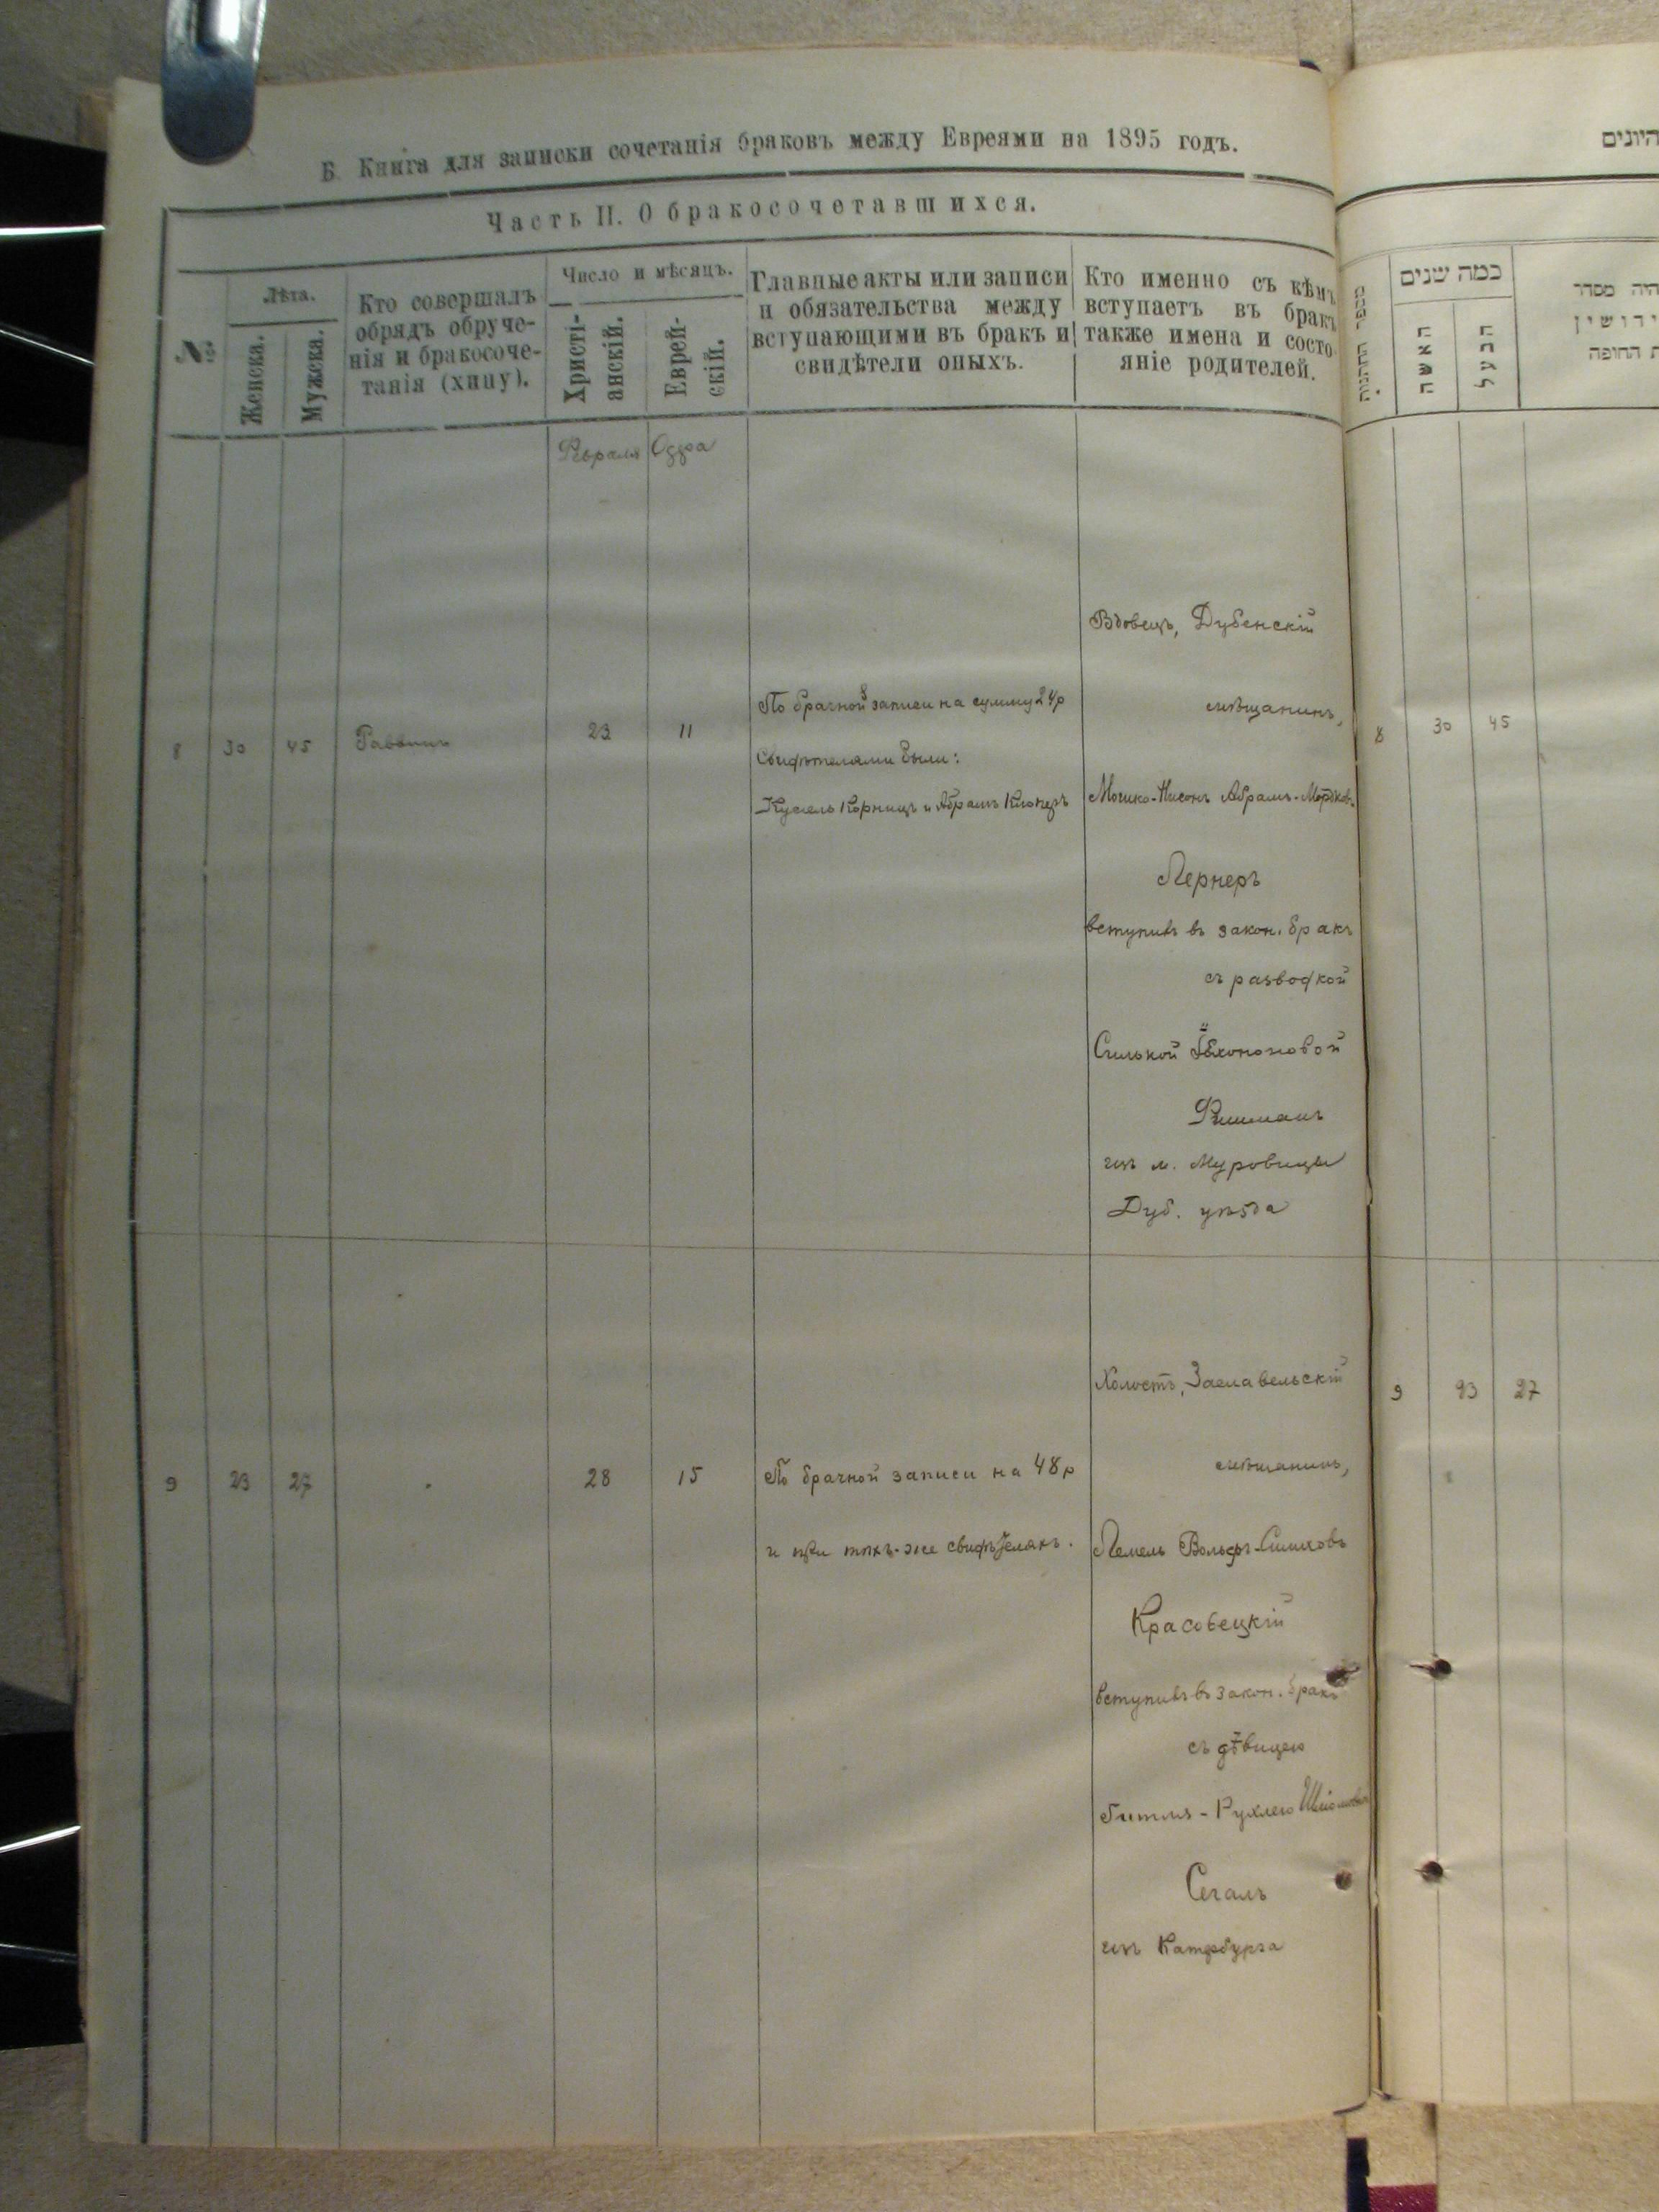 Б. Книга для записки сочетанія браковъ между Евреями на 1895 годъ.
Часть II. О бракосочетавшихся.
№
Лѣта.
Женска.
Мужска.
Кто совершалъ
обрядъ обруче-
нія и бракосоче-
танія (хипу).
Число и мѣсяцъ.
Христі-
анскій.
Еврей-
скій.
Главные акты или записи
и обязательства между
вступающими въ бракъ и
свидѣтели оныхъ.
Кто именно съ кѣмъ
вступаетъ въ бракъ
также имена и состо
яніе родителей.
Февраля
Одра
8
30
45
Раввинъ
23
11
По брачной записи на сумму 24р
Свидѣтелями были:
Кусель Корницъ и Абрамъ
Вдовецъ, Дубенскій
мѣщанинъ,
Мошко-Нисонъ Абрамъ-Мордков.
Лернеръ
вступилъ въ закон. бракъ
съ разводкой
Фишманъ
изъ м. Муровицы
Дуб. уѣзда
9
23
27
28
15
По брачной записи на 48р
и при тѣхъ-же свидѣтеляхъ.
Холостъ, Заславельскій
мѣщанинъ,
Лемель Вольфъ-Симховъ
Красовецкій
вступилъ въ закон. бракъ
съ дѣвицею
Гитля-Рухлею
Сегалъ
изъ Катербурга
היונים
מספר החתונות
כמה שנים
האשה
הבעל
היה מסדר
ידושין
ת החופה
8
30
45
9
23
27